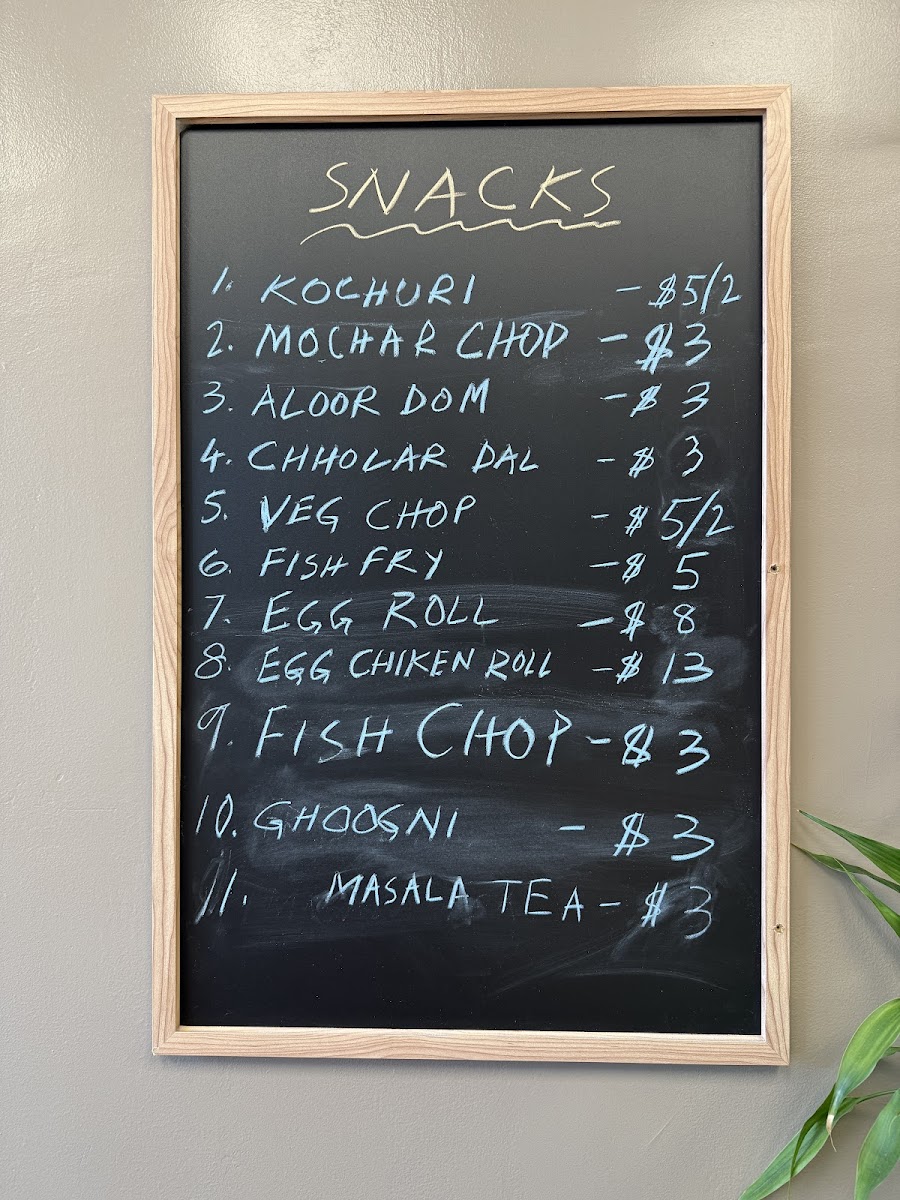 SNACKS
1. KOCHURI - $5/2
2. MOCHAR CHOP - $3
3. ALOOR DOM - $ 3
4. CHHOLAR DAL - $ 3
5. VEG CHOP - $ 5/2
6. FISH FRY - $ 5
7. EGG ROLL - $ 8
8. EGG CHIKEN ROLL - $ 13
9. FISH CHOP - $ 3
10. GHOOGNI - $ 3
11. MASALA TEA - $ 3